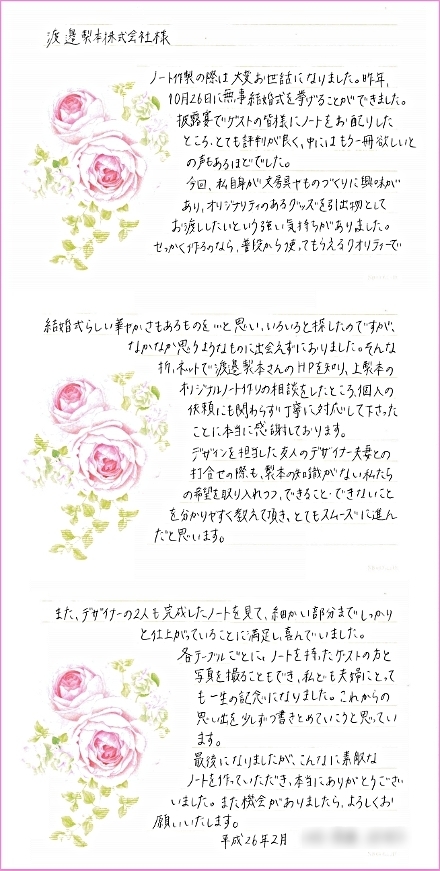 渡邊製本株式会社様
ノート作製の際は大変お世話になりました。昨年、
10月26日に無事結婚式を挙げることができました。
披露宴でゲストの皆様にノートをお配りした
ところ、とても評判が良く、中にはもう一冊欲しいと
の声もあるほどでした。
今回、私自身が文房具やものづくりに興味が
あり、オリジナリティのあるグッズを引出物として
お渡ししたいという強い気持ちがありました。
せっかく作るのなら、普段から使ってもらえるクオリティーで
結婚式らしい華やかさもあるものを…と思い、いろいろと探したのですが、
なかなか思うようなものに出会えずにおりました。そんな
折、ネットで渡邊製本さんのHPを知り、上製本の
オリジナルノート作りの相談をしたところ、個人の
依頼にも関わらず丁寧に対応して下さった
ことに本当に感謝しております。
デザインを担当した友人のデザイナー夫妻との
打合せの際も、製本の知識がない私たち
の希望を取り入れつつ、できること・できないこと
を分かりやすく教えて頂き、とてもスムーズに進ん
だと思います。
また、デザイナーの2人も完成したノートを見て、細かい部分までしっかり
と仕上がっていることに満足し喜んでいました。
各テーブルごとに、ノートを持ったゲストの方と
写真を撮ることもでき、私ども夫婦にとって
も一生の記念になりました。これからの
思い出を少しずつ書きとめていこうと思ってい
ます。
最後になりましたが、こんなに素敵な
ノートを作っていただき、本当にありがとうござい
いました。また機会がありましたら、よろしくお
願いいたします。
平成26年2月